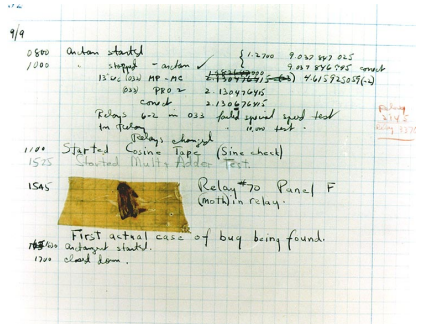 9/9
0800 antan started
1000 " stopped - antan ✓ { 1.2700 9.037 847 025
9.037 846 995 correct
13" UC (032) MP - MC 2.130476415 4.615925059(-2)
(033) PRO 2 2.130476415
correct 2.130676415
Relays 6-2 in 033 failed special speed test
in Relay " 10,000 test.
Relays changed
1100 Started Cosine Tape (Sine check)
1525 Started Mult + Adder Test.
1545 Relay #70 Panel F
(moth) in relay.
First actual case of bug being found.
1630 antangent started.
1700 closed down.
Relay
2145
Relay 3370